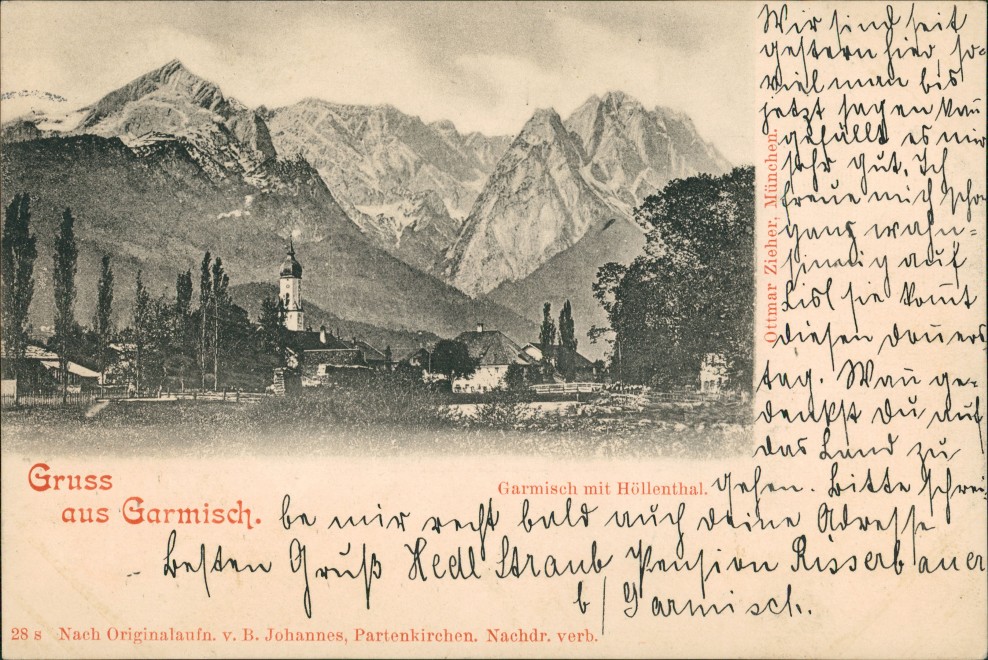 Wir sind seit
gestern hier, so-
viel man bis
jetzt sagen kann
gefällt es mir
sehr gut. Ich
freue mich schon
ganz wahn-
sinnig auf
Lisl sie kommt
diesen Donners
tag. Wann ge-
denkst Du auf
das Land zu
gehen. Bitte schrei-
be mir recht bald auch deine Adresse
Besten Gruß Hedl Straub Pension Risserbauer
b/ Garmisch.
Ottmar Zieher, München.
Garmisch mit Höllenthal.
Gruss
aus Garmisch.
28 s Nach Originalaufn. v. B. Johannes, Partenkirchen. Nachdr. verb.